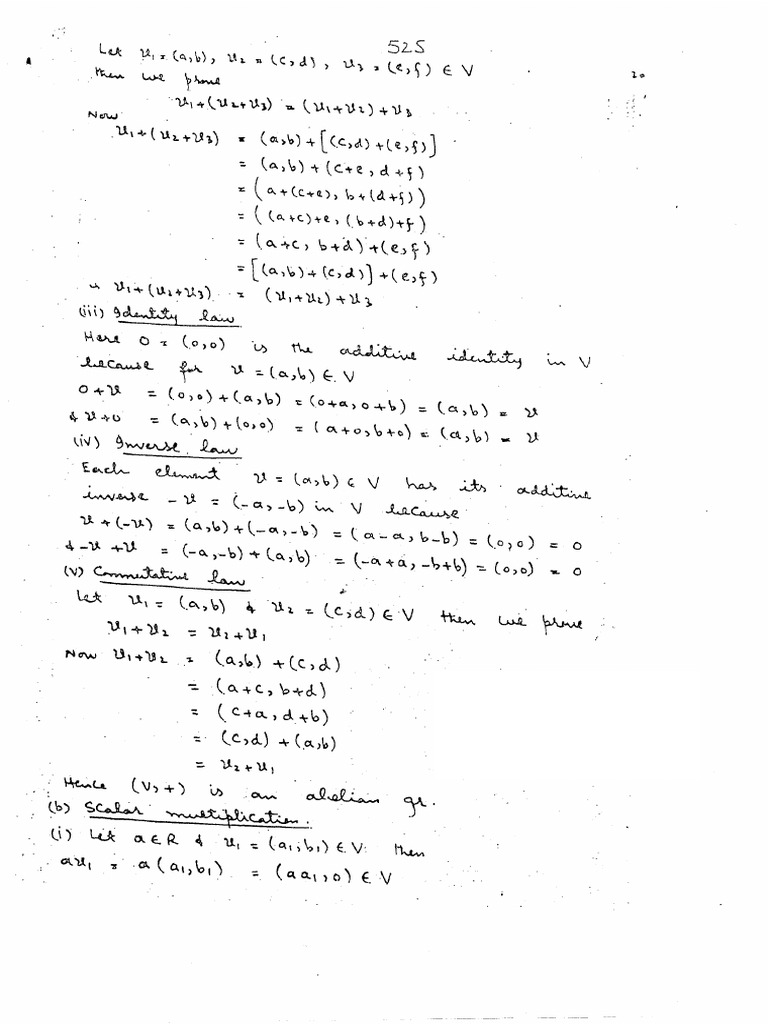 525
Let v₁ = (a,b), v₂ = (c,d), v₃ = (e,f) ∈ V
20
then we prove
v₁+(v₂+v₃) = (v₁+v₂)+v₃
Now
v₁+(v₂+v₃) = (a,b)+[(c,d)+(e,f)]
= (a,b)+(c+e, d+f)
= (a+(c+e), b+(d+f))
= ((a+c)+e, (b+d)+f)
= (a+c, b+d)+(e,f)
= [(a,b)+(c,d)]+(e,f)
v₁+(v₂+v₃) = (v₁+v₂)+v₃
(iii) Identity law
Here 0 = (0,0) is the additive identity in V
because for v = (a,b) ∈ V
0+v = (0,0)+(a,b) = (0+a, 0+b) = (a,b) = v
& v+0 = (a,b)+(0,0) = (a+0, b+0) = (a,b) = v
(iv) Inverse law
Each element v = (a,b) ∈ V has its additive
inverse -v = (-a,-b) in V because
v+(-v) = (a,b)+(-a,-b) = (a-a, b-b) = (0,0) = 0
& -v+v = (-a,-b)+(a,b) = (-a+a, -b+b) = (0,0) = 0
(v) Commutative law
Let v₁ = (a,b) & v₂ = (c,d) ∈ V then we prove
v₁+v₂ = v₂+v₁
Now v₁+v₂ = (a,b)+(c,d)
= (a+c, b+d)
= (c+a, d+b)
= (c,d)+(a,b)
= v₂+v₁
Hence (V,+) is an abelian gr.
(b) Scalar multiplication.
(i) Let a∈R & v₁ = (a₁,b₁) ∈ V then
av₁ = a(a₁,b₁) = (aa₁,0) ∈ V